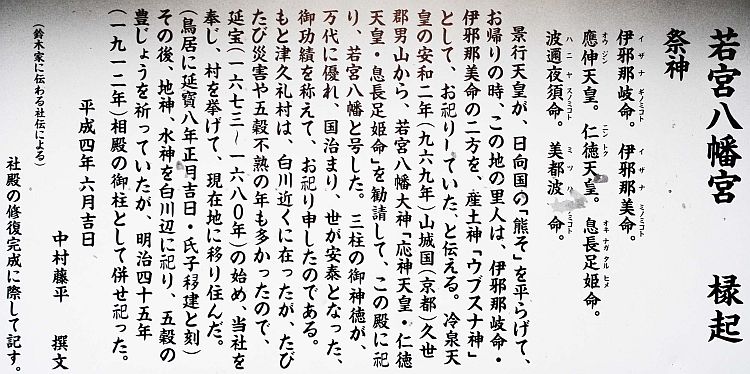 若宮八幡宮　縁起
祭神
伊邪那岐命。　伊邪那美命。
イザナギノミコト　イザナミノミコト
應伸天皇。　仁徳天皇。　息長足姫命。
オウジン　ニントク　オキナガタルヒメ
波邇夜須命。　美都波　命。
ハニヤスノミコト　ミツハ　ノミコト
景行天皇が、日向国の「熊そ」を平らげて、
お帰りの時、この地の里人は、伊邪那岐命・
伊邪那美命の二方を、産土神「ウブスナ神」
として、お祀りーていた、と伝える。冷泉天
皇の安和二年（九六九年）山城国（京都）久世
郡男山から、若宮八幡大神「応神天皇・仁徳
天皇・息長足姫命」を勧請して、この殿に祀
り、若宮八幡と号した。三柱の御神徳が、
万代に優れ、国治まり、世が安泰となった、
御功績を称えて、お祀り申したのである。
もと津久礼村は、白川近くに在ったが、たび
たび災害や五穀不熟の年も多かったので、
延宝（一六七三～一六八〇年）の始め、当社を
奉じ、村を挙げて、現在地に移り住んだ。
（鳥居に延寳八年正月吉日・氏子移建と刻）
その後、地神、水神を白川辺に祀り、五穀の
豊じょうを祈っていたが、明治四十五年
（一九一二年）相殿の御柱として併せ祀った。
平成四年六月吉日
中村藤平　撰文
（鈴木家に伝わる社伝による）
社殿の修復完成に際して記す。